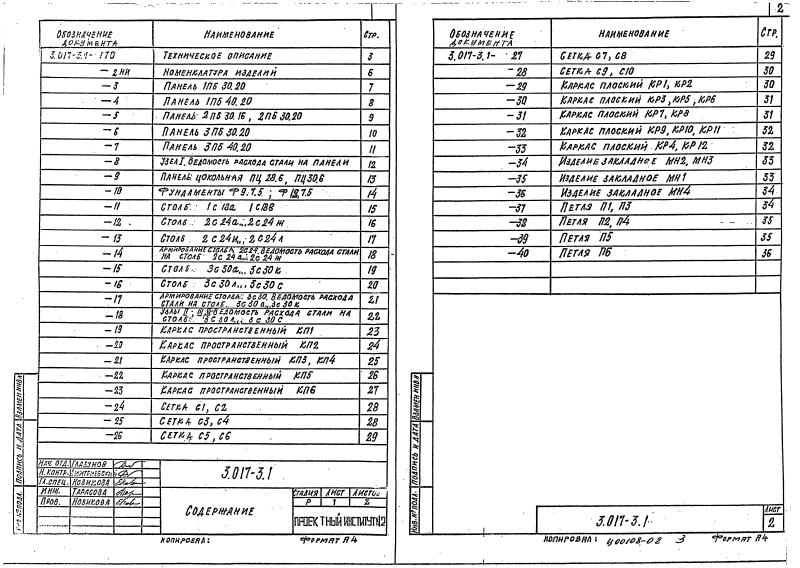 2
Обозначение документа Наименование Стр.
3.017-3.1- 1ТО Техническое описание 3
-2НИ Номенклатура изделий 6
-3 Панель 1ПБ 30.20 7
-4 Панель 1ПБ 40.20 8
-5 Панель 2ПБ 30.16, 2ПБ 30.20 9
-6 Панель 3ПБ 30.20 10
-7 Панель 3ПБ 40.20 11
-8 Узел I. Ведомость расхода стали на панели 12
-9 Панель цокольная ПЦ 28.6, ПЦ 30.6 13
-10 Фундаменты Ф 9.7.5; Ф 12.7.5 14
-11 Столб 1С 18а 1С 18в 15
-12 Столб 2С 24а...2С 24ж 16
-13 Столб 2С 24и...2С 24л 17
-14 Армирование столба 2С24. Ведомость расхода стали
на столб 2С 24а...2С 24ж 18
-15 Столб 3С 30а...3С 30к 19
-16 Столб 3С 30л...3С 30с 20
-17 Армирование столба 3С 30. Ведомость расхода
стали на столб 3С 30а...3С 30к 21
-18 Узлы II; III; Ведомость расхода стали на
столб 3С 30л...3С 30с 22
-19 Каркас пространственный КП1 23
-20 Каркас пространственный КП2 24
-21 Каркас пространственный КП3, КП4 25
-22 Каркас пространственный КП5 26
-23 Каркас пространственный КП6 27
-24 Сетка С1, С2 28
-25 Сетка С3, С4 28
-26 Сетка С5, С6 29
Нач. отд. Глазунов
Н. контр.
Гл. спец. Новикова
Инж. Тарасова
Пров. Новикова
3.017-3.1
Содержание
Стадия Лист Листов
Р 1 2
Проектный институт №2
Копировал: Формат А4
Инв. № подл. Подпись и дата Взамен инв. №
Обозначение документа Наименование Стр.
3.017-3.1- 27 Сетка С7, С8 29
-28 Сетка С9, С10 30
-29 Каркас плоский КР1, КР2 30
-30 Каркас плоский КР3, КР5, КР6 31
-31 Каркас плоский КР7, КР8 31
-32 Каркас плоский КР9, КР10, КР11 32
-33 Каркас плоский КР4, КР12 32
-34 Изделие закладное МН2, МН3 33
-35 Изделие закладное МН1 33
-36 Изделие закладное МН4 34
-37 Петля П1, П3 34
-38 Петля П2, П4 35
-39 Петля П5 35
-40 Петля П6 36
Инв. № подл. Подпись и дата Взамен инв. №
3.017-3.1
Лист
2
Копировал: Ц00108-02 3 Формат А4